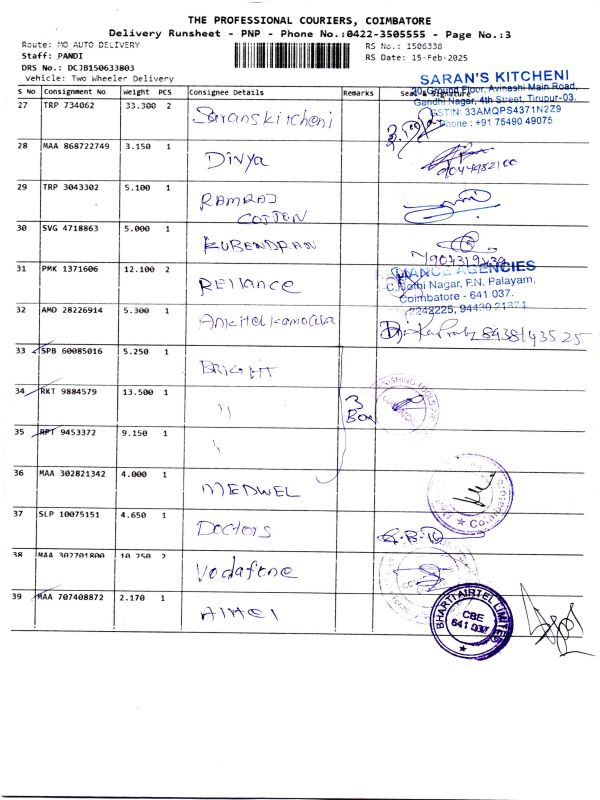 THE PROFESSIONAL COURIERS, COIMBATORE
Delivery Runsheet - PNP - Phone No.:0422-3505555 - Page No.:3
Route: MO AUTO DELIVERY RS No.: 1506338
Staff: PANDI RS Date: 15-Feb-2025
DRS No.: DCJB150633803
Vehicle: Two Wheeler Delivery
S No Consignment No Weight PCS Consignee Details Remarks Seal & Signature
SARAN'S KITCHENI
20, Ground Floor, Avinashi Main Road,
Gandhi Nagar, 4th Street, Tirupur-03.
GSTIN: 33AMQPS4371N2Z9
Phone : +91 75490 49075
27 TRP 734062 33.300 2 Saranskitcheni
28 MAA 868722749 3.150 1 Divya
29 TRP 3043302 5.100 1 RAMRAJ
COTTON
30 SVG 4718863 5.000 1 KUBENDRAN
31 PMK 1371606 12.100 2 Reliance
AGENCIES
Nagar, P.N. Palayam,
Coimbatore - 641 037.
32 AMD 28226914 5.300 1
33 SPB 60085016 5.250 1 BRIGHT
34 RKT 9884579 13.500 1 "
3
Box
35 RPT 9453372 9.150 1 "
36 MAA 302821342 4.000 1 MEDWEL
37 SLP 10075151 4.650 1 Doctors
38 MAA 302701800 10.250 2 Vodafone
39 MAA 707408872 2.170 1 Airtel
BHARTI AIRTEL LIMITED
CBE
641 037